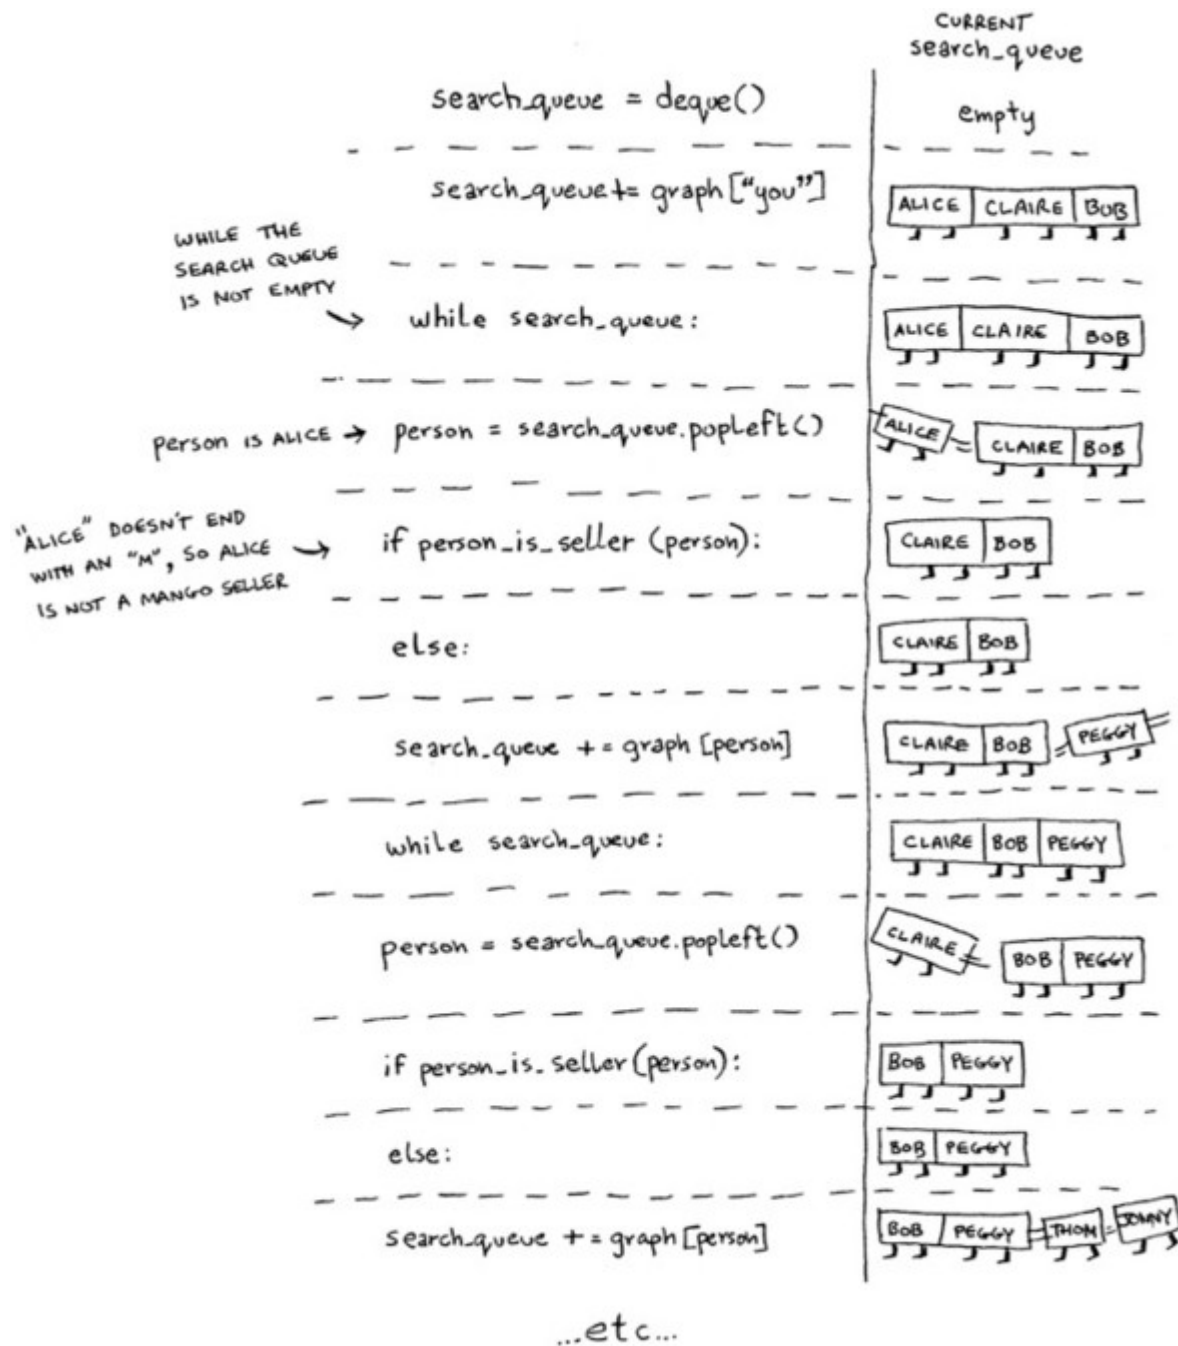 CURRENT
search_queue
search_queue = deque()
empty
search_queue += graph["you"]
ALICE CLAIRE BOB
WHILE THE
SEARCH QUEUE
IS NOT EMPTY
while search_queue:
ALICE CLAIRE BOB
person IS ALICE → person = search_queue.popleft()
ALICE CLAIRE BOB
"ALICE" DOESN'T END
WITH AN "M", SO ALICE
IS NOT A MANGO SELLER
if person_is_seller (person):
CLAIRE BOB
else:
CLAIRE BOB
search_queue += graph [person]
CLAIRE BOB PEGGY
while search_queue:
CLAIRE BOB PEGGY
person = search_queue.popleft()
CLAIRE BOB PEGGY
if person_is_seller (person):
BOB PEGGY
else:
BOB PEGGY
search_queue += graph [person]
BOB PEGGY THOM JONNY
...etc...